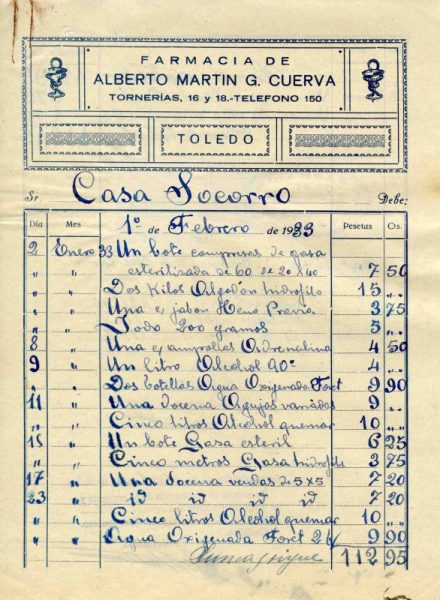 FARMACIA DE
ALBERTO MARTIN G. CUERVA
TORNERÍAS, 16 y 18.-TELEFONO 150
TOLEDO
Sr Casa Socorro Debe:
Día Mes 1º de Febrero de 1933 Pesetas Cts.
2 Enero 33 Un bote compresas de gasa
esterilizada de 60 de 20x40 7 50
" " Dos Kilos Algodón hidrofilo 15 "
" " Una c/ jabon Heno Pravia 3 75
" " Iodo 200 gramos 5 "
8 " Una c/ ampollas Adrenalina 4 50
9 " Un litro Alcohol 90º 4 "
" " Dos botellas Agua Oxigenada Foret 9 90
11 " Una docena Agujas variadas 9 "
" " Cinco litros Alcohol quemar 10 "
15 " Un bote Gasa esteril 6 25
" " Cinco metros Gasa hidrofila 3 75
17 " Una docena vendas 5x5 7 20
23 " id id id id 7 20
" " Cinco litros Alcohol quemar 10 "
" " Agua Oxigenada Foret 2 9 90
Suma y sigue 112 95